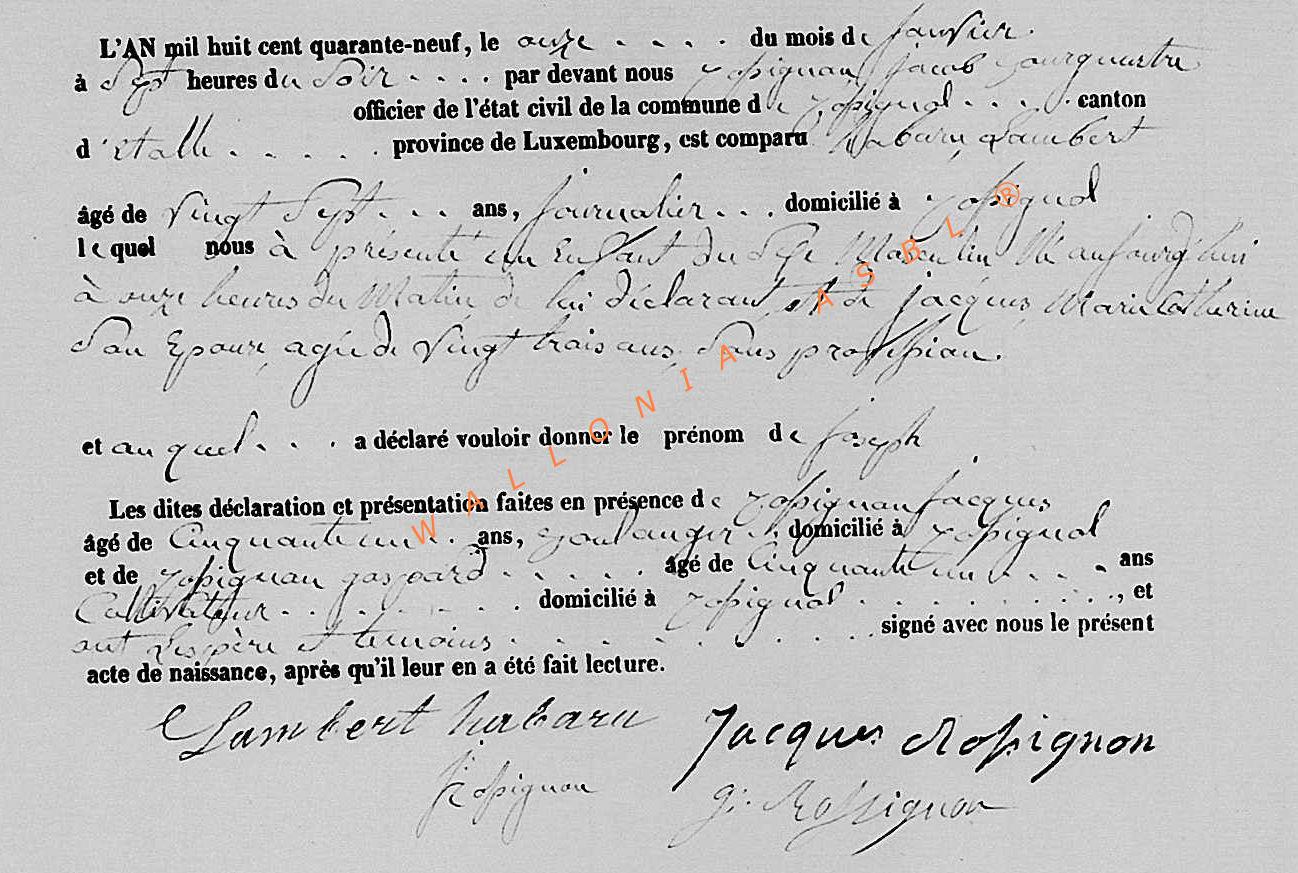 L'AN mil huit cent quarante-neuf, le onze . . . . du mois de Janvier.
à Sept heures du Soir . . . . par devant nous Rossignon Jacob Bourguestre
officier de l'état civil de la commune de Rossignol . . . . canton
d'Etalle . . . . . province de Luxembourg, est comparu Habaru Lambert
âgé de Vingt Sept . . . ans, Journalier . . . domicilié à Rossignol
lequel nous à présenté un Enfant du Sexe Masculin Né aujourd'hui
à onze heures du Matin de lui déclarant et de Jacques Marie Catherine
Son Epouse agée de Vingt trois ans, Sans profession.
et auquel . . . a déclaré vouloir donner le prénom de Joseph
Les dites déclaration et présentation faites en présence de Rossignon Jacques
âgé de Cinquante un . . ans, Boulanger . domicilié à Rossignol
et de Rossignon gaspard . . . . . âgé de Cinquante un . . . . ans
Cultivateur . . . . . . . domicilié à Rossignol . . . . . . . . . ., et
ont les père et temoins . . . . . . . . . signé avec nous le présent
acte de naissance, après qu'il leur en a été fait lecture.
Lambert habaru Jacques Rossignon
Rossignon g. Rossignon
WALLONIA ASBL ®